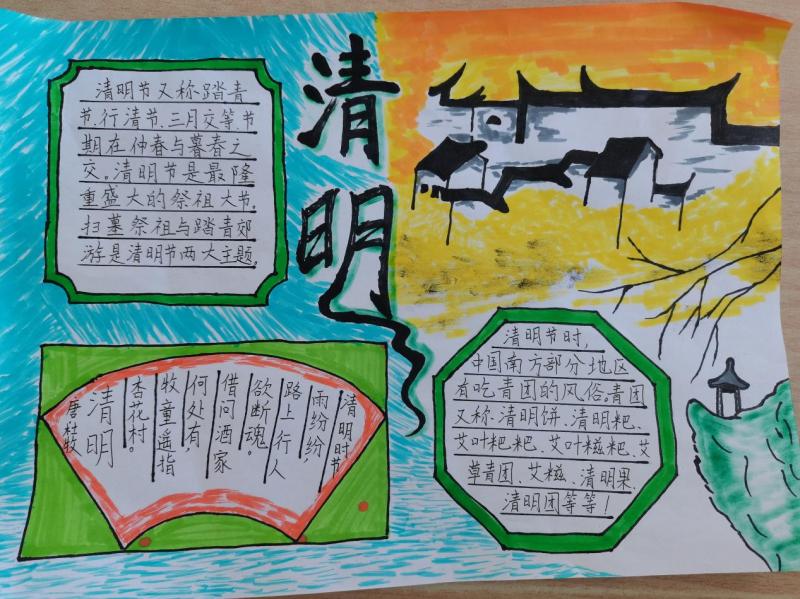 清明
清明节又称踏青
节、行清节、三月交等、节
期在仲春与暮春之
交。清明节是最隆
重盛大的祭祖大节。
扫墓祭祖与踏青郊
游是清明节两大主题。
清明时节
雨纷纷,
路上行人
欲断魂。
借问酒家
何处有,
牧童遥指
杏花村。
清明
唐杜牧
清明节时,
中国南方部分地区
有吃青团的风俗。青团
又称:清明饼、清明粑、
艾叶粑粑、艾叶糍粑、艾
草青团、艾糍、清明果、
清明团等等!